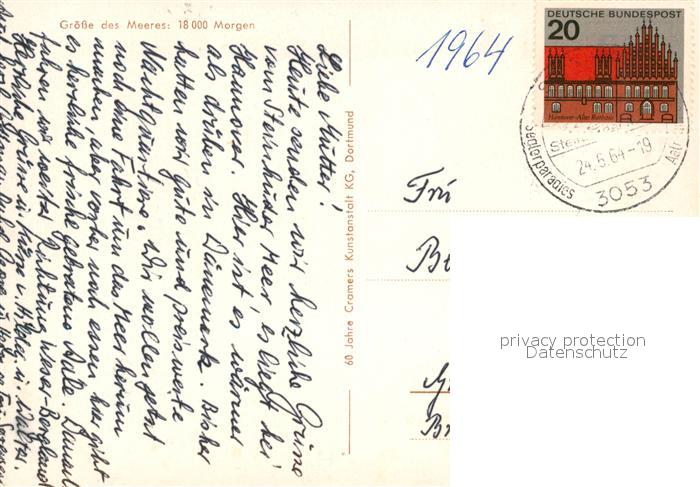 Größe des Meeres: 18 000 Morgen
Liebe Mutter!
Heute senden wir herzliche Grüsse
vom Steinhuder Meer, es liegt bei
Hannover. Hier ist es wärmer
als drüben in Dänemark. Bisher
hatten wir gute und preiswerte
Nachtquartiere. Wir wollen jetzt
noch eine Fahrt um das Meer herum
machen, aber vorher noch einen, hier gibt
es herrliche frische gebratene Aale. Danach
fahren wir weiter Richtung Weser-Bergland
Herzliche Grüsse u. Küsse
60 Jahre Cramers Kunstanstalt KG, Dortmund
1964
DEUTSCHE BUNDESPOST
20
Hannover-Altes Rathaus
Stein
24.6.64-19
3053
Seglerparadies
Frü
Be
Br
privacy protection
Datenschutz